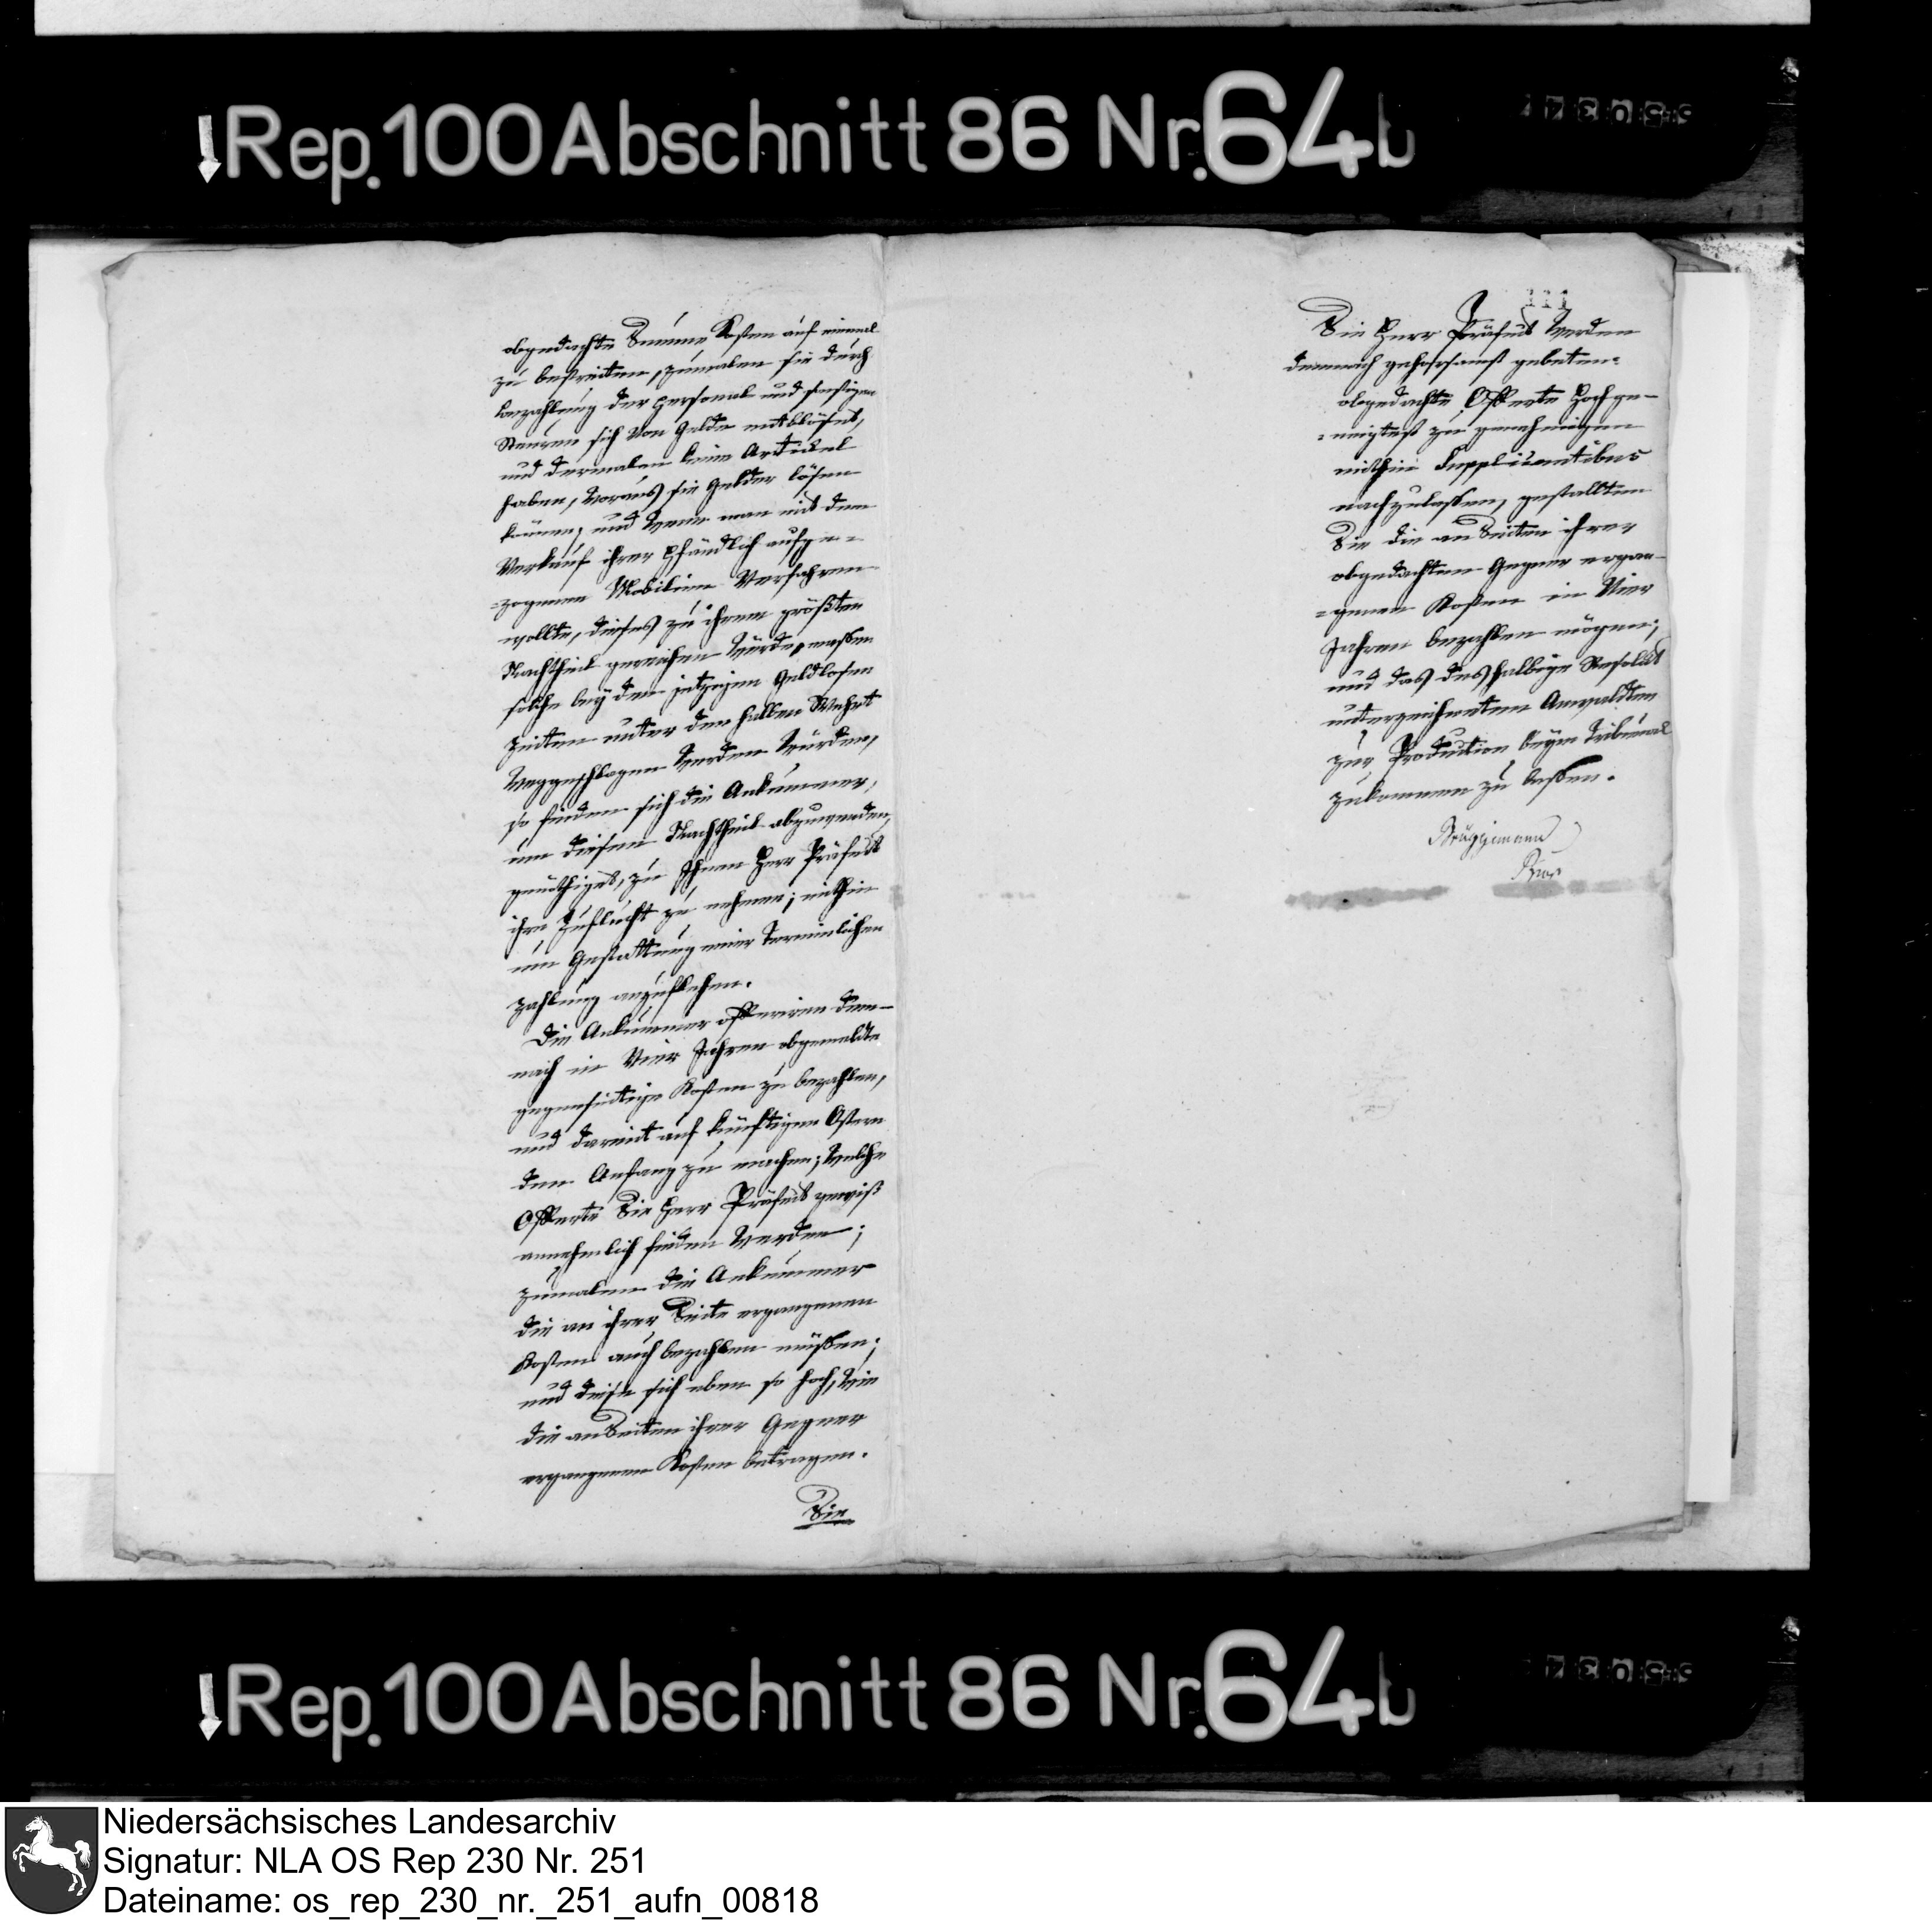 Rep. 100 Abschnitt 86 Nr. 64b
obgedachte Summe Kosten auf einmal
zu bestreiten, zumalen sie durch
bezahlung der personal und sonstigen
Steuren sich von Gelde entblößet,
und dermalen keine Artickel
haben, woraus sie Gelder lösen
können; und wenn man mit dem
Verkauf ihrer pfändlich aufge=
=zogenen Mobilien verfahren
wollte, dieses zu ihrem größten
Nachtheil gereichen würde, maßen
solche bey den jetzigen Geldlosen
Zeiten unter der halben Wehrt
weggeschlagen werden würden,
so finden sich die Ankummer,
um diesen Nachtheil abzuwenden,
genöthiget, zu Ihnen Herr Präfect
ihre Zuflucht zu nehmen; mithin
um Gestattung einer terminlichen
Zahlung anzuflehen.
Die Ankummer offeriren dem-
nach in Vier Jahren obgemeldte
gegenseitige Kosten zu bezahlen,
und damit auf künftigen Ostern
den Anfang zu machen; welche
Offerte Sie Herr Präfect gewiß
annehmlich finden werden;
zumalen die Ankummer
die an ihrer Seite ergangenen
Kosten auch bezahlen müßen;
und diese sich eben so hoch, wie
die an Seiten ihrer Gegner
ergangenen Kosten betragen.
Sie
111
Sie Herr Präfect werden
demnach gehorsamst gebeten:
obgedachte Offerte Hochge-
=neigtest zu genehmigen
mithin Supplicantibus
nachzulassen, gestallten
Sie die an Seiten ihrer
obgedachten Gegner ergan-
=genen Kosten in Vier
Jahren bezahlen mögen;
und das deshalbige Resolut
unterzeichneten Anwaldten
zur Production beym Tribunal
zukommen zu laßen.
Brüggemann
Rep. 100 Abschnitt 86 Nr. 64b
Niedersächsisches Landesarchiv
Signatur: NLA OS Rep 230 Nr. 251
Dateiname: os_rep_230_nr._251_aufn_00818